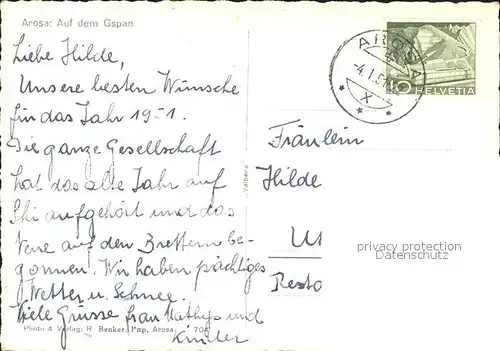 Arosa: Auf dem Gspan
Liebe Hilde,
Unsere besten Wünsche
für das Jahr 1951.
Die ganze Gesellschaft
hat das alte Jahr auf
Ski aufgehört und das
Neue auf den Brettern be-
gonnen. Wir haben prächtiges
Wetter u. Schnee.
Viele Grüsse Frau Mathys und
Kinder
Photo & Verlag: R. Benker, Pap. Arosa
704
AROSA
-4.1.51
X
10
HELVETIA
Fräulein
Hilde
Resto
privacy protection
Datenschutz